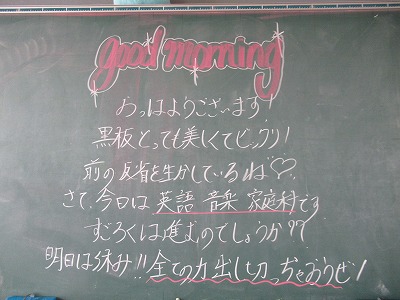 good morning
おっはようございます!
黒板とっても美しくてビックリ!
前の反省を生かしているね♡
さて、今日は 英語 音楽 家庭科です
すごろくは進むのでしょうか??
明日は休み!!全ての力出し切っちゃおうぜ!